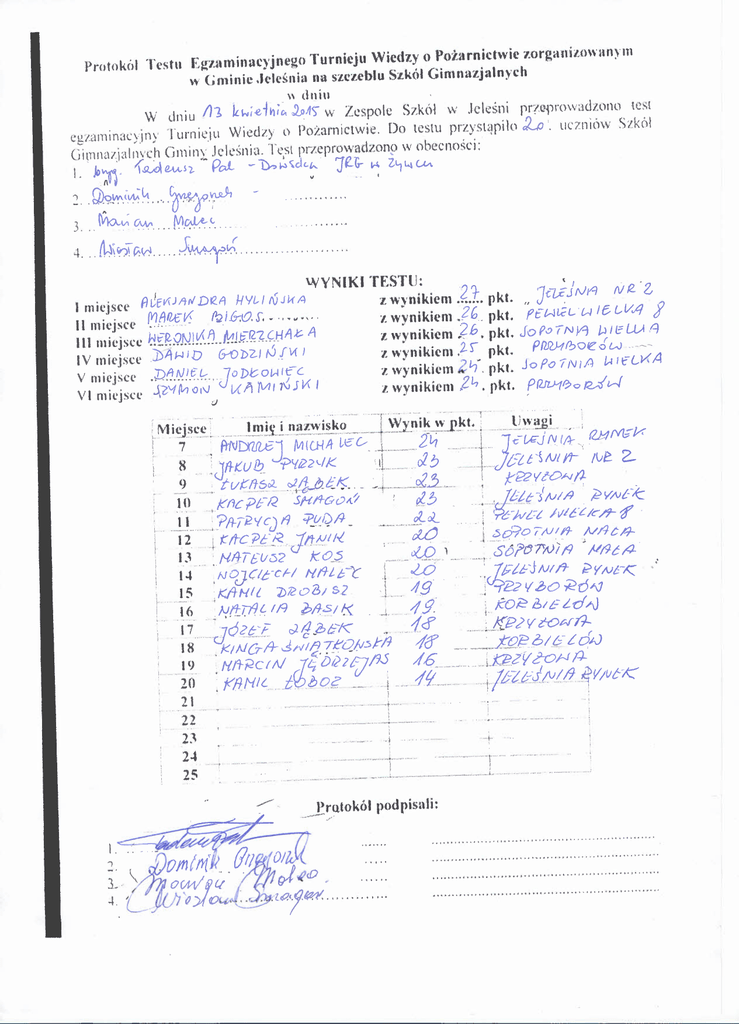 Protokół Testu Egzaminacyjnego Turnieju Wiedzy o Pożarnictwie zorganizowanym
w Gminie Jeleśnia na szczeblu Szkół Gimnazjalnych
w dniu
W dniu 13 kwietnia 2015 w Zespole Szkół w Jeleśni przeprowadzono test
egzaminacyjny Turnieju Wiedzy o Pożarnictwie. Do testu przystąpiło 20. uczniów Szkół
Gimnazjalnych Gminy Jeleśnia. Test przeprowadzono w obecności:
1. bryg. Tadeusz Pal - Dowódca JRG w Żywcu
2. Dominik Grzegorzek -
3. Marian Malec
4. Wiesław Smagoń
WYNIKI TESTU:
I miejsce ALEKSANDRA HYLIŃSKA z wynikiem 27 pkt. „JELEŚNIA NR 2
II miejsce MAREK BIGOS z wynikiem 26 pkt. PEWEL WIELKA 8
III miejsce WERONIKA MIERZCHAŁA z wynikiem 26. pkt. SOPOTNIA WIELKA
IV miejsce DAWID GODZIŃSKI z wynikiem 25 pkt. PRZYBORÓW
V miejsce DANIEL JODŁOWIEC z wynikiem 24. pkt. SOPOTNIA WIELKA
VI miejsce SZYMON KAMIŃSKI z wynikiem 24. pkt. PRZYBORÓW
Miejsce Imię i nazwisko Wynik w pkt. Uwagi
7 ANDRZEJ MICHALEC 24 JELEŚNIA RYNEK
8 JAKUB PYRZYK 23 JELEŚNIA NR 2
9 ŁUKASZ ZĄBEK 23 KRZYŻOWA
10 KACPER SMAGOŃ 23 JELEŚNIA RYNEK
11 PATRYCJA PUDA 22 PEWEL WIELKA 8
12 KACPER JANIK 20 SOPOTNIA MAŁA
13 MATEUSZ KOS 20 SOPOTNIA MAŁA
14 WOJCIECH MALEC 20 JELEŚNIA RYNEK
15 KAMIL DROBISZ 19 PRZYBORÓW
16 NATALIA BASIK 19 KORBIELÓW
17 JÓZEF ZĄBEK 18 KRZYŻOWA
18 KINGA ŚWIĄTKOWSKA 18 KORBIELÓW
19 MARCIN JĘDRZEJAS 16 KRZYŻOWA
20 KAMIL ŁOBOZ 14 JELEŚNIA RYNEK
21
22
23
24
25
Protokół podpisali:
1.
2. Dominik Grzegorzek
3. Marian Malec
4. Wiesław Smagoń